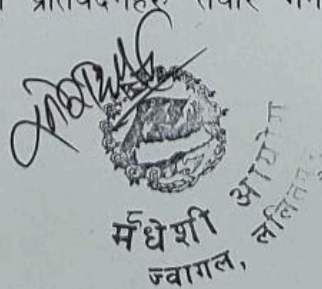 प्रतिवेदनहरू तयार
मधेशी आयोग
ज्वागल, ललितपुर